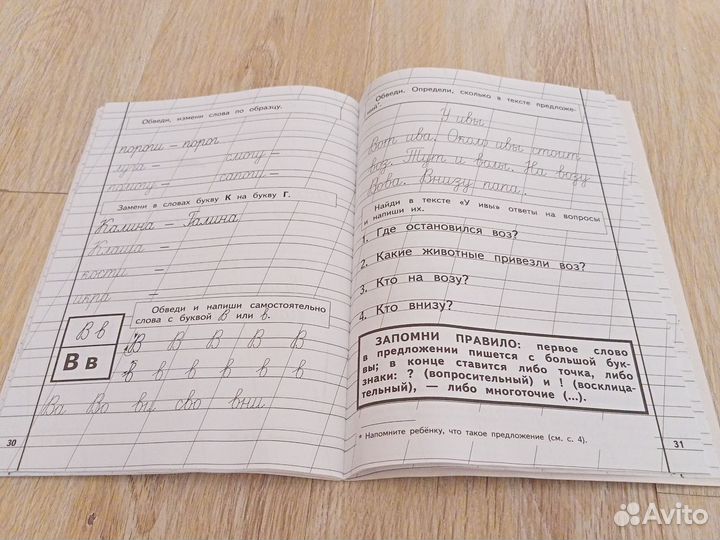 Обведи, измени слова по образцу.
пороги – порог
луга – слоги –
сапоги –
Замени в словах букву К на букву Г.
Калина – Галина
Клаша –
кости –
икра –
Обведи и напиши самостоятельно
слова с буквой В или в.
В в
В В В В В В
В в
в в в в в в в
Ва Во ви сво вни
30
Обведи. Определи, сколько в тексте предложе-
ний*.
У ивы
Вот ива. Около ивы стоит
воз. Тут и волы. На возу
Вова. Внизу папа.
Найди в тексте «У ивы» ответы на вопросы
и напиши их.
1. Где остановился воз?
2. Какие животные привезли воз?
3. Кто на возу?
4. Кто внизу?
ЗАПОМНИ ПРАВИЛО: первое слово
в предложении пишется с большой бук-
вы; в конце ставится либо точка, либо
знаки: ? (вопросительный) и ! (восклица-
тельный), — либо многоточие (...).
* Напомните ребёнку, что такое предложение (см. с. 4).
31
Avito